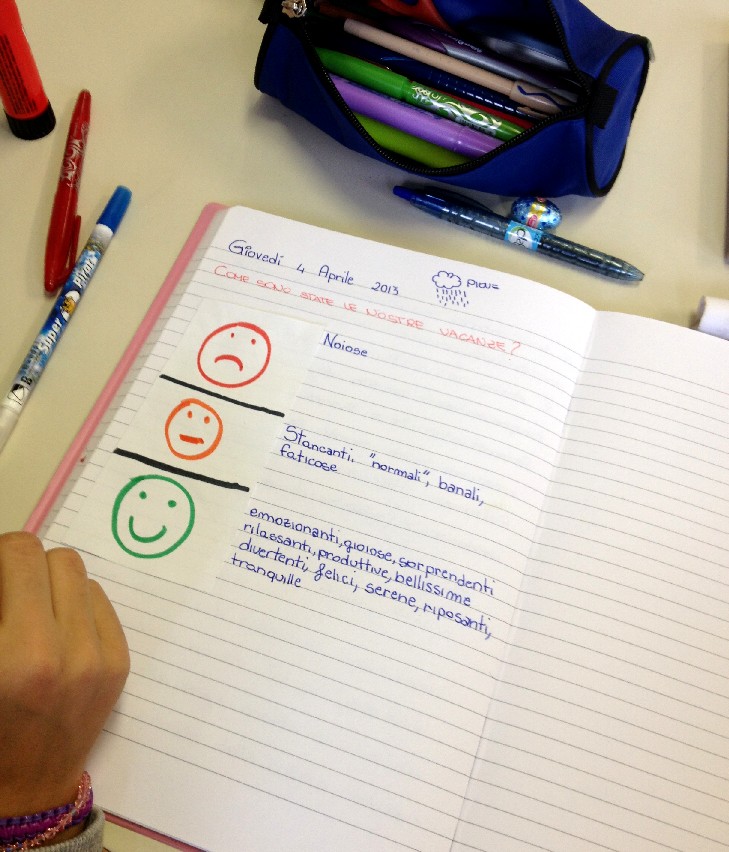 Giovedì 4 Aprile 2013
piove
COME SONO STATE LE NOSTRE VACANZE?
Noiose
Stancanti, "normali", banali,
faticose
emozionanti, gioiose, sorprendenti
rilassanti, produttive, bellissime
divertenti, felici, serene, riposanti,
tranquille
Super Pirat